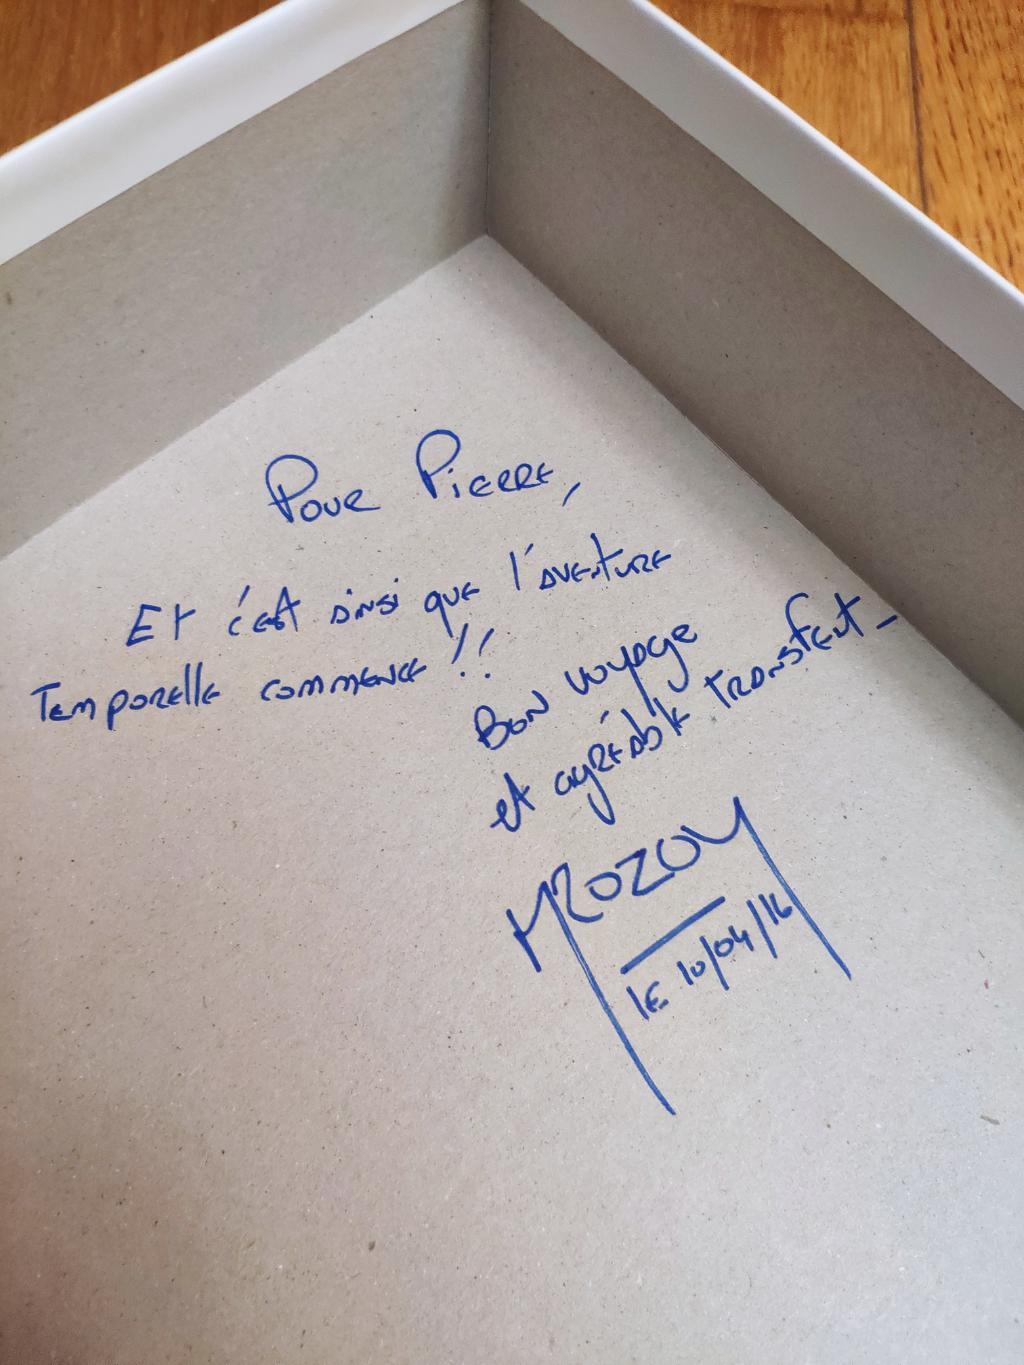 Pour Pierre,
Et c'est ainsi que l'aventure
Temporelle commence !!
Bon voyage
et agréable transfert_
le 10/04/16